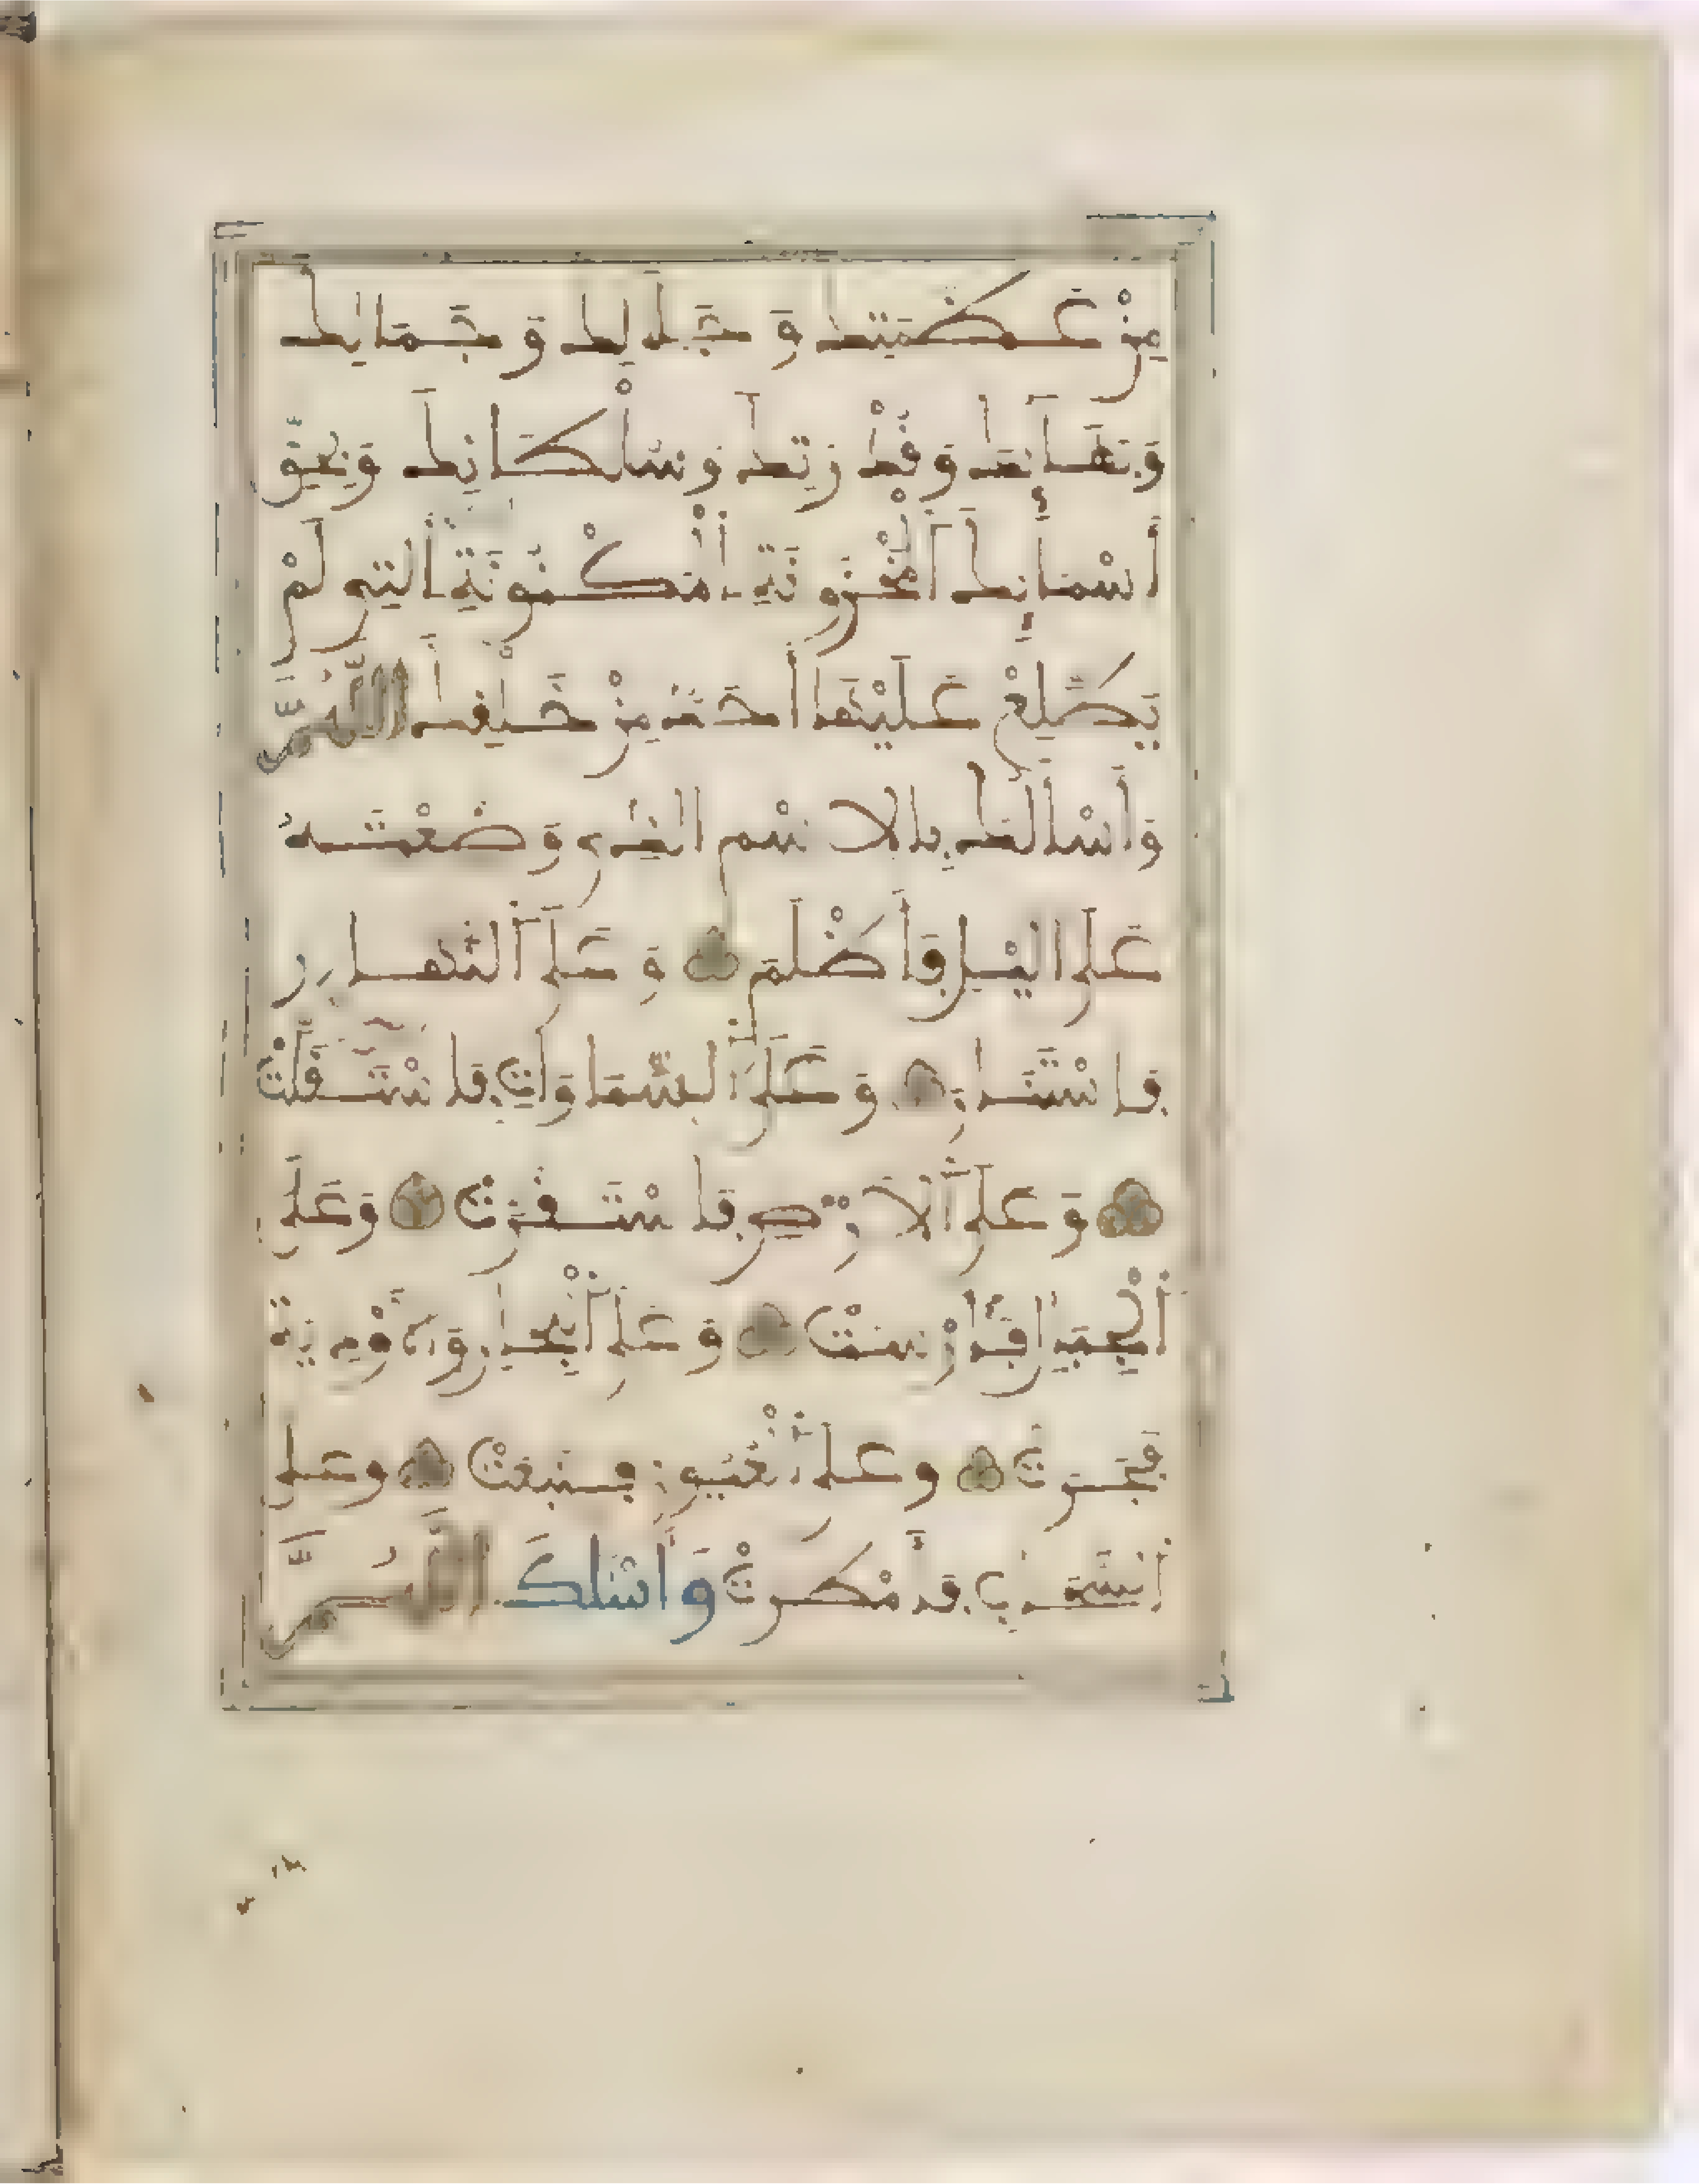 مِنْ عَظَمَتِكَ وَجَلَالِكَ وَجَمَالِكَ
وَبَهَائِكَ وَقُدْرَتِكَ وَسُلْطَانِكَ وَبِحَقِّ
أَسْمَائِكَ الْمَخْزُونَةِ الْمَكْنُونَةِ الَّتِي لَمْ
يَطَّلِعْ عَلَيْهَا أَحَدٌ مِنْ خَلْقِكَ اللَّهُمَّ
وَأَسْأَلُكَ بِالِاسْمِ الَّذِي وَضَعْتَهُ
عَلَى اللَّيْلِ فَأَظْلَمَ وَعَلَى النَّهَارِ
فَاسْتَنَارَ وَعَلَى السَّمَاوَاتِ فَاسْتَقَلَّتْ
وَعَلَى الْأَرْضِ فَاسْتَقَرَّتْ وَعَلَى
الْجِبَالِ فَأَرْسَتْ وَعَلَى الْبِحَارِ وَالْأَوْدِيَةِ
فَجَرَتْ وعلى الْعُيُونِ فنبعتْ وعلى
السَّحَابِ فَأَمْطَرَتْ وَأَسْأَلُكَ اللَّهُمَّ